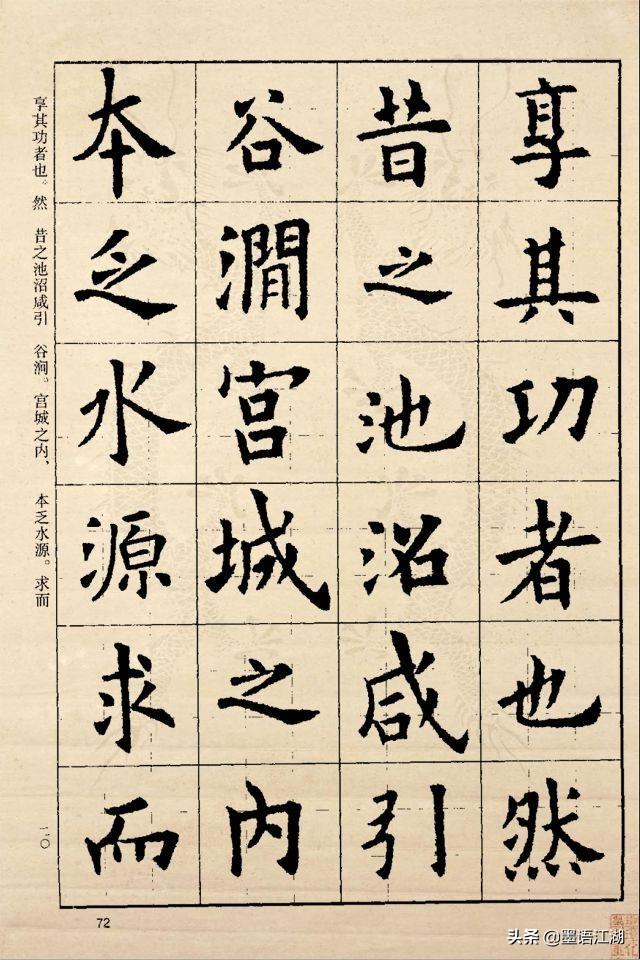 享其功者也然
昔之池沼咸引
谷澗宫城之内
本乏水源求而
享其功者也。然 昔之池沼咸引 谷涧。宫城之内， 本乏水源。求而
一〇
72
头条 @墨语江湖